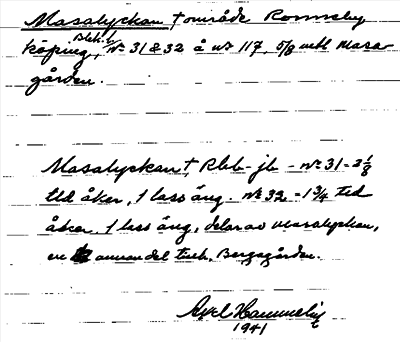 Masalyckan † område Ronneby
Blek. l.
köping, Nr 31 & 32 å nr 117, 5/8 mtl Masa-
gården.
Masalyckan †, Rbb-jb - nr 31 - 2 1/8
tld åker, 1 lass äng. Nr 32 - 1 3/4 tld
åker, 1 lass äng, delar av Masalyckan,
en annan del tillh. Bergsgården.
Axel Hammelin
1941